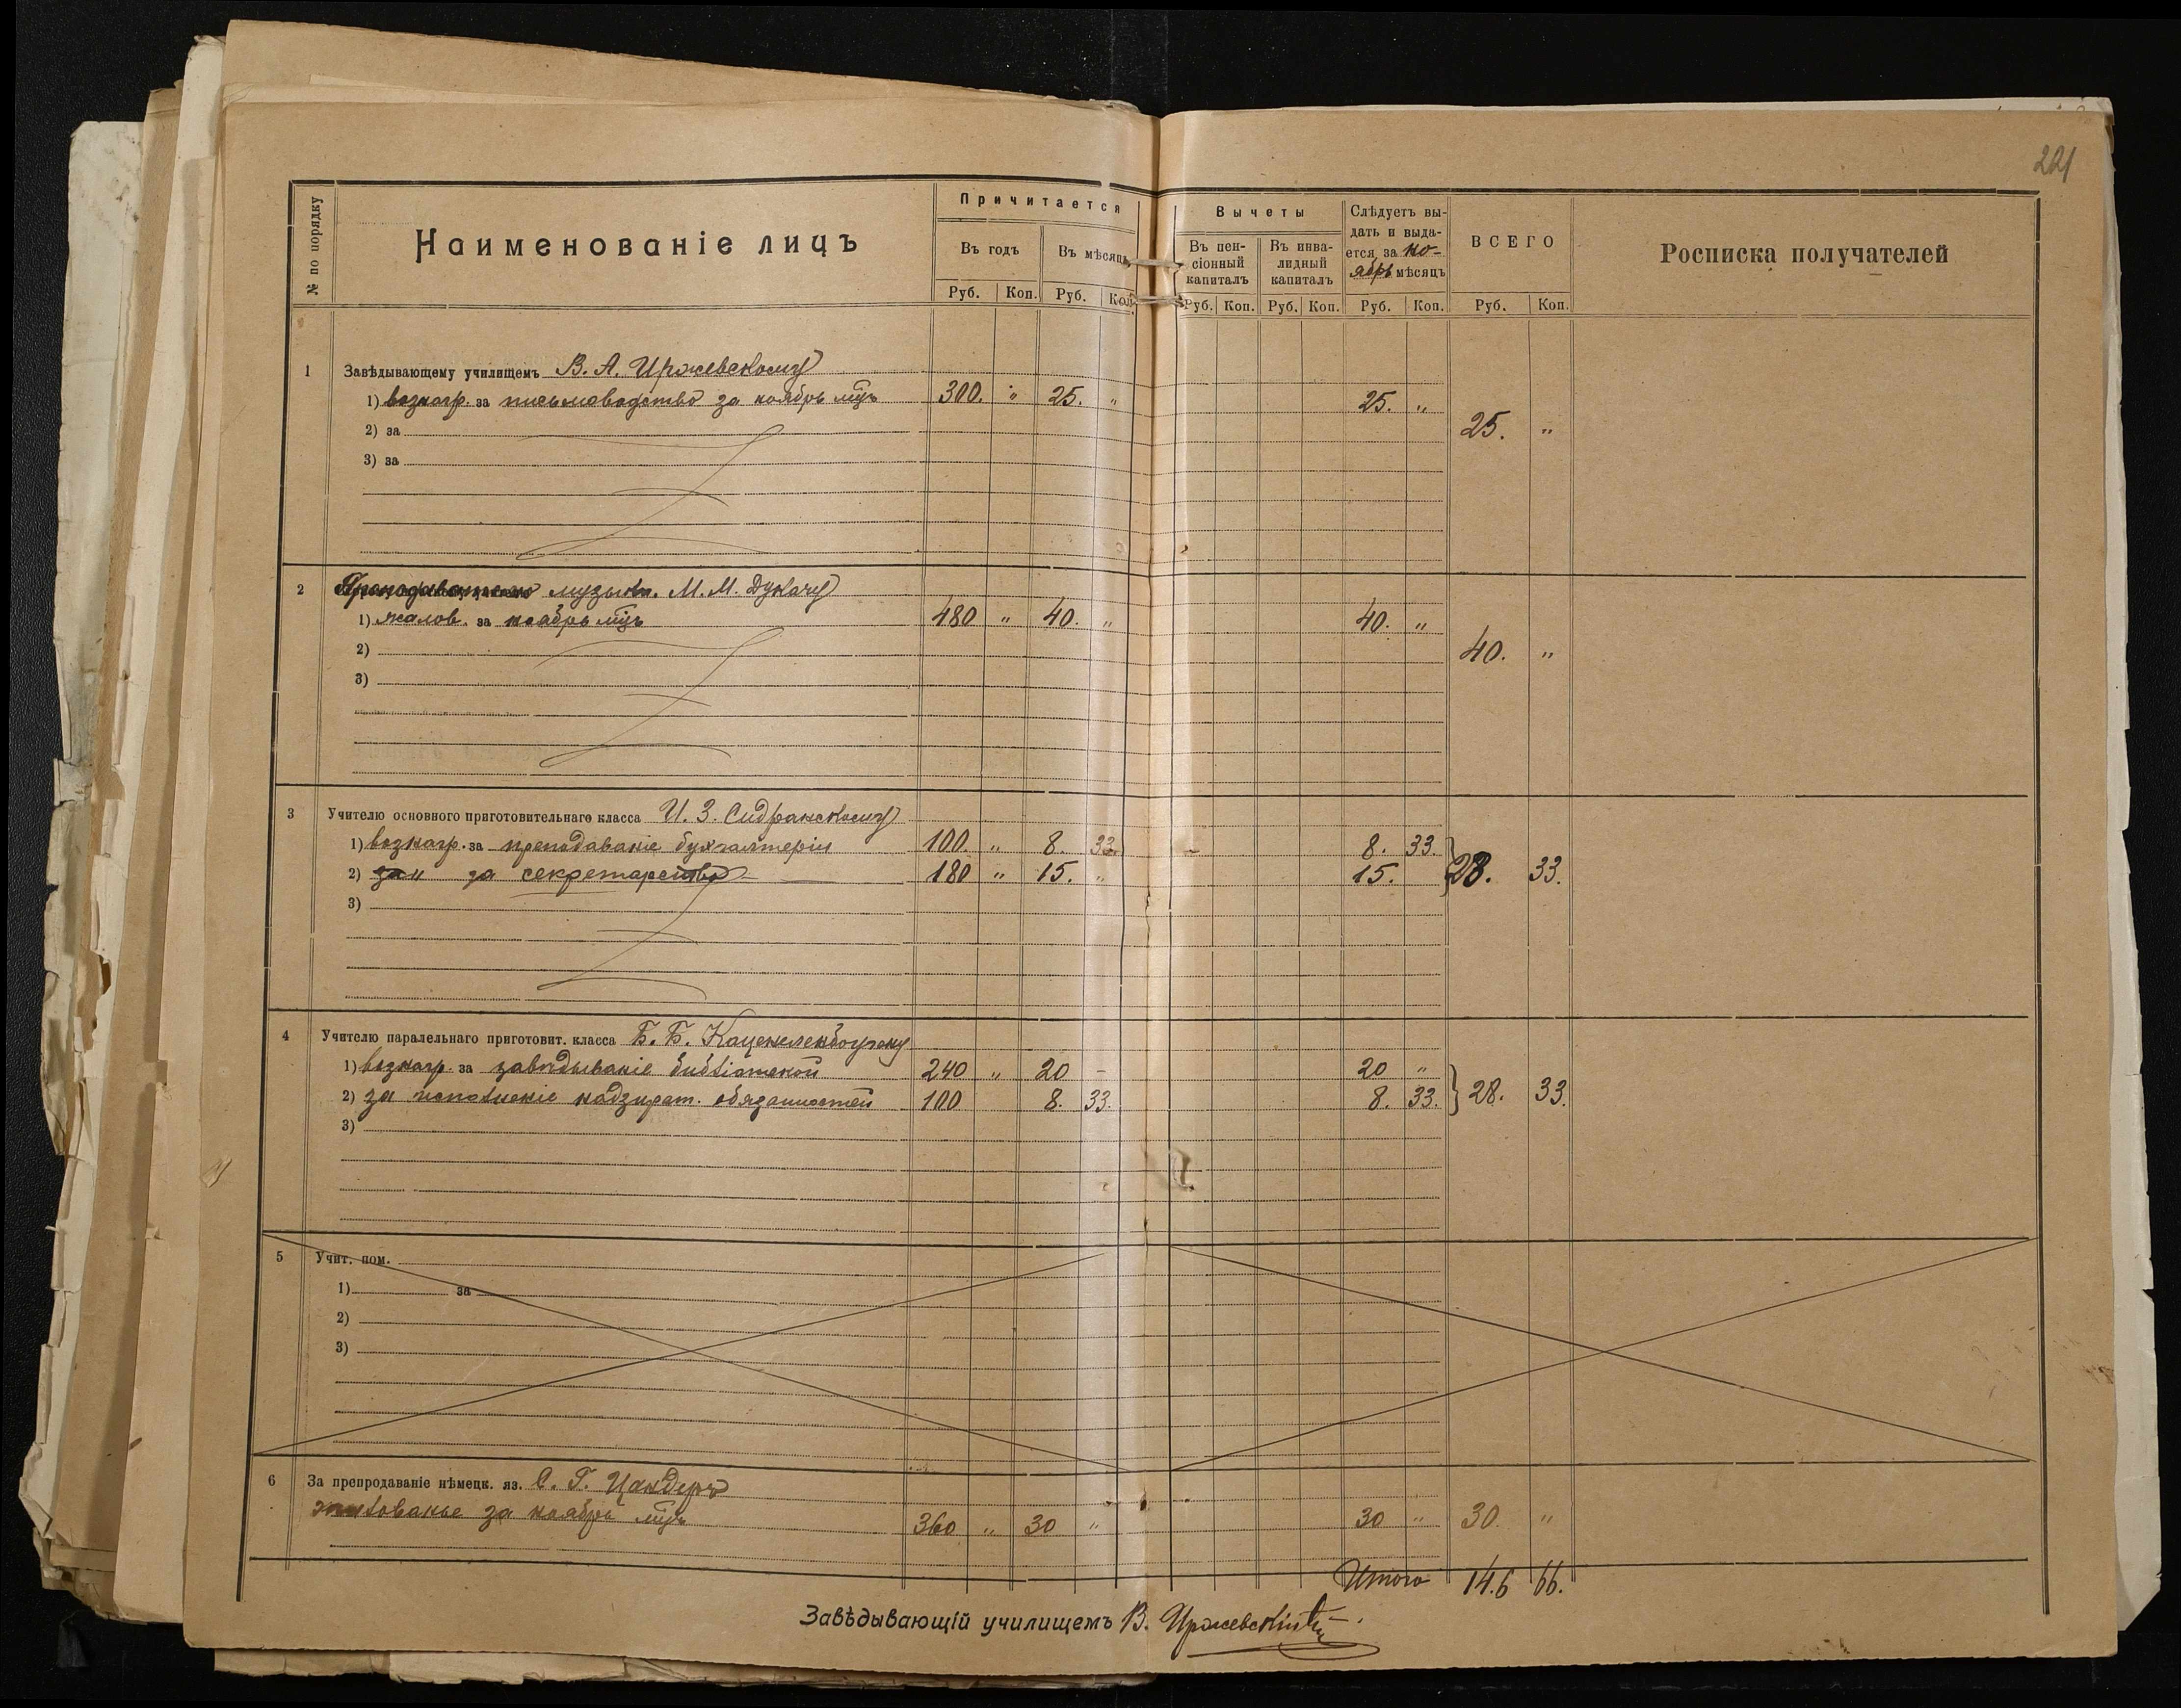 221
№ по порядку
Наименованіе лицъ
Причитается
Въ годъ
Въ мѣсяцъ
Руб. Коп. Руб. Коп.
Вычеты
Въ пен-
сіонный
капиталъ
Въ инва-
лидный
капиталъ
Слѣдуетъ вы-
дать и выда-
ется за но-
ябрь мѣсяцъ
ВСЕГО
Росписка получателей
Руб. Коп. Руб. Коп. Руб. Коп. Руб. Коп.
1 Завѣдывающему училищемъ В. А. Иржевскому
1) вознагр. за письмоводство за ноябрь мцъ 300. " 25. " 25. "
2) за
25. "
3) за
2 Преподавателю музыки. М. М. Дукачу
1) жалов. за ноябрь мцъ 480 " 40. " 40. "
2)
40. "
3)
3 Учителю основного приготовительнаго класса И. З. Сидранскому
1) вознагр. за преподаваніе бухгалтеріи 100. " 8. 33. 8. 33.
2) " за секретарство 180 " 15. " 15. } 28. 33.
3)
4 Учителю паралельнаго приготовит. класса Б. Б. Каценеленбогену
1) вознагр. за завѣдываніе библіотекой 240 " 20 – 20 "
2) за исполненіе надзират. обязанностей 100 8. 33. 8. 33. } 28. 33.
3)
5 Учит. пом.
1) за
2)
3)
6 За препродаваніе нѣмецк. яз. С. Г. Цандеръ
жалованье за ноябрь мцъ 360 " 30 " 30 " 30. "
Итого 146 66.
Завѣдывающій училищемъ В. Иржевскій